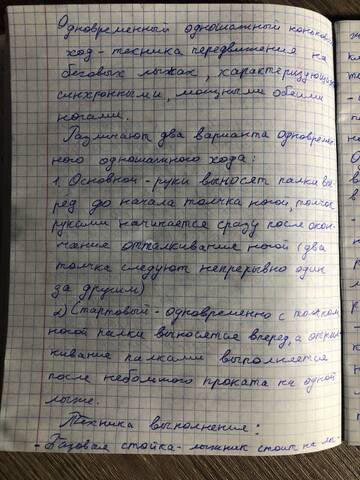 Одновременный одношажный коньковый
ход - техника передвижения на
беговых лыжах, характеризующ
синхронными, мощными обеими
ногами.
Различают два варианта одноврем
ного одношажного хода:
1. Основной - руки выносят палки вы
ред до начала толчка ногой, толчок
руками начинается сразу после окон-
чание отталкивание ногой (два
толчка следуют непрерывно один
за другим)
2) Стартовый - одновременно с толчком
ногой палки выносятся вперед, а оттал
кивание палками выполняется
после небольшого проката на одной
лыже.
Техника выполнения:
- Базовая стойка - лыжник стоит на